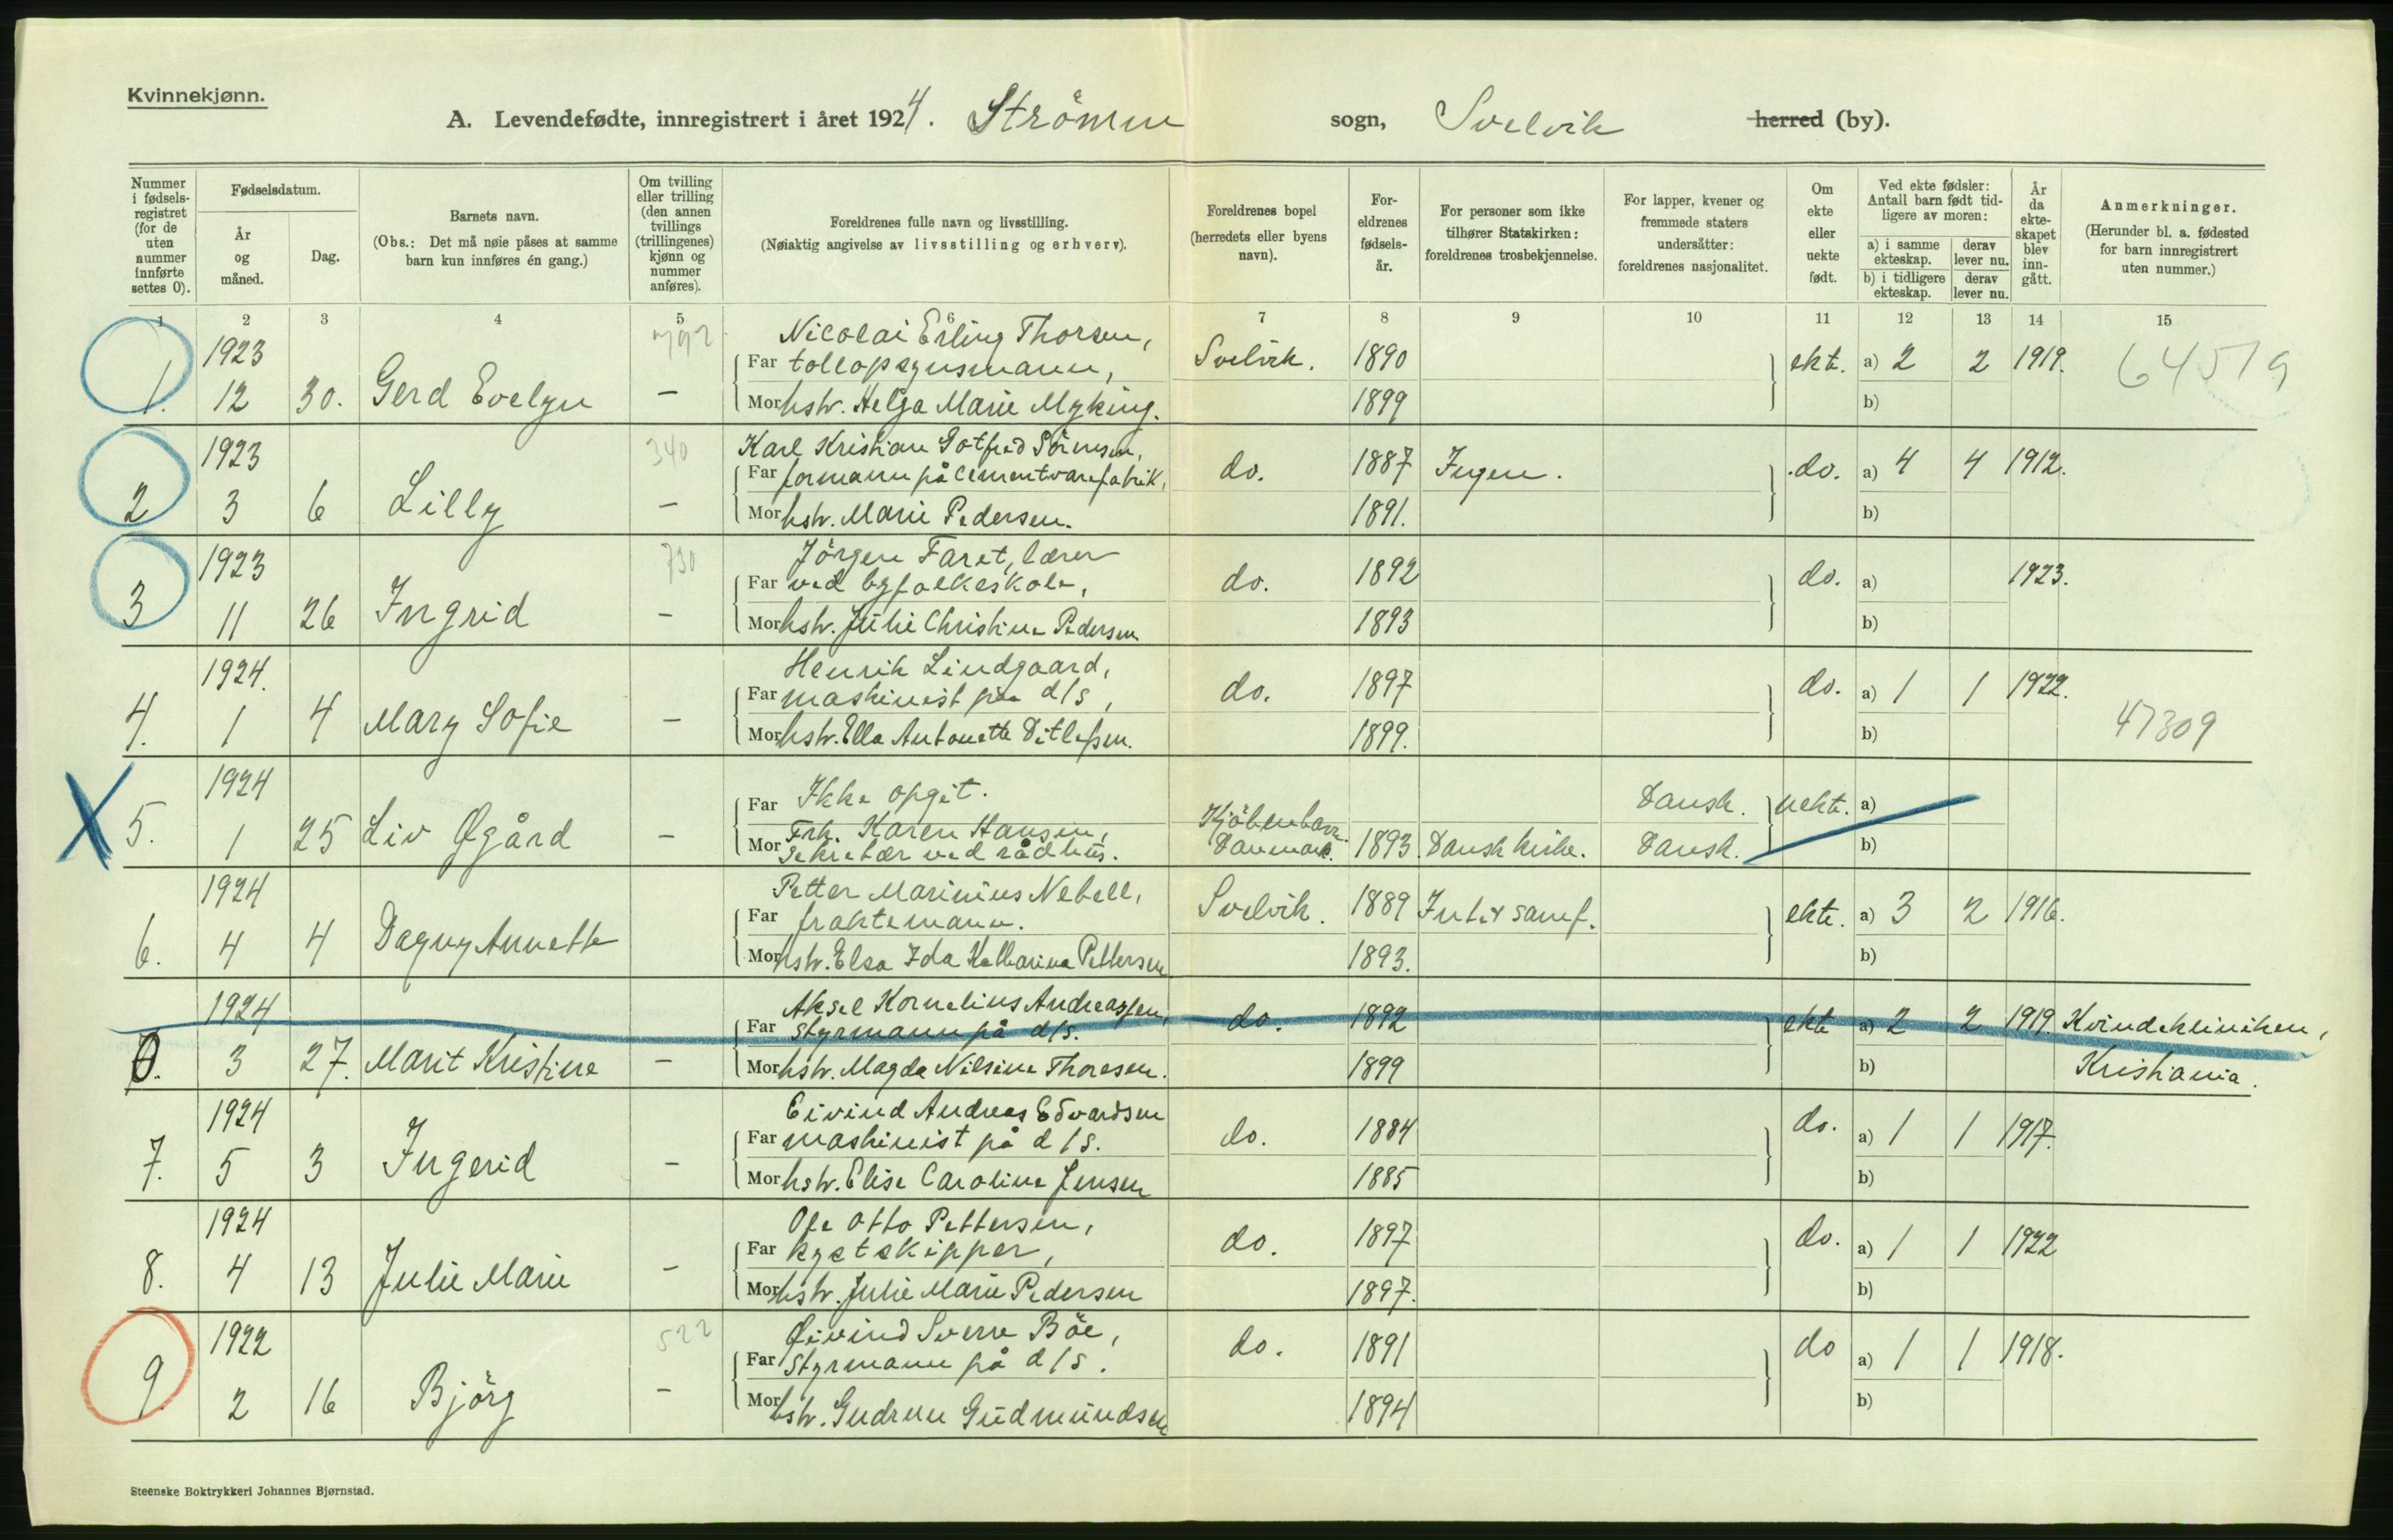 Kvinnekjønn.
A. Levendefødte, innregistrert i året 1924. Strömm sogn, Svelvik herred (by).
Nummer i fødsels-registret (for de uten nummer innførte settes 0).
Fødselsdatum.
År og måned.
Dag.
Barnets navn.
(Obs.: Det må nøie påses at samme barn kun innføres én gang.)
Om tvilling eller trilling (den annen tvillings (trillingenes) kjønn og nummer anføres).
Foreldrenes fulle navn og livsstilling.
(Nøiaktig angivelse av livsstilling og erhverv).
Foreldrenes bopel (herredets eller byens navn).
For-eldrenes fødsels-år.
For personer som ikke tilhører Statskirken: foreldrenes trosbekjennelse.
For lapper, kvener og fremmede staters undersåtter: foreldrenes nasjonalitet.
Om ekte eller uekte født.
Ved ekte fødsler: Antall barn født tid-ligere av moren:
a) i samme ekteskap. derav lever nu.
b) i tidligere ekteskap. derav lever nu.
År da ekte-skapet blev inn-gått.
Anmerkninger.
(Herunder bl. a. fødested for barn innregistrert uten nummer.)
1 2 3 4 5 6 7 8 9 10 11 12 13 14 15
1923 Nicolai Erling Thorsen,
Far tollopsynsmann, Svelvik. 1890 ekt. a) 2 2 1919. 64519
1. 12 30. Gerd Evelyn — Mor hstr. Helga Marie Myking. 1899 b)
1923 340 Karl Kristian Gotfred Sörensen,
Far formann på Cementvarefabrik, do. 1887 Ingen. do. a) 4 4 1912.
2 3 6 Lilly — Mor hstr. Marie Pedersen. 1891. b)
1923 730 Jörgen Faret, lærer
Far ved byfolkeskole, do. 1892 do. a) 1923.
3 11 26 Ingrid — Mor hstr. Julie Christine Pedersen 1893 b)
1924. Henrik Lindgaard,
Far maskinist paa d/s, do. 1897 do. a) 1 1 1922.
4. 1 4 Mary Sofie — Mor hstr. Ella Antonette Ditlefsen. 1899. b) 47309
1924 Far Ikke opgit. Dansk. uekte. a)
5. 1 25 Liv Øgård — Mor Frk. Karen Hansen, Kjöbenhavn
sekretær ved rådhus. Danmark. 1893. Dansk kirke. Dansk. b)
1924 Petter Marinius Nebell,
Far fraktemann. Svelvik. 1889 Inter samf. ekte. a) 3 2 1916.
6. 4 4 Dagny Annette Mor hstr. Elsa Ida Katharina Pettersen 1893. b)
1924 Aksel Kornelius Andreassen,
Far styrmann på d/s. do. 1892 ekte a) 2 2 1919. Kvindekliniken,
0. 3 27. Marit Kristine — Mor hstr. Magda Nilsine Thoresen. 1899 b) Kristiania.
1924 Eivind Andreas Edvardsen
Far maskinist på d/s. do. 1884 do. a) 1 1 1917.
7. 5 3 Ingerid — Mor hstr. Elise Caroline Jensen 1885 b)
1924 Ole Otto Pettersen,
Far kystskipper, do. 1897 do. a) 1 1 1922
8. 4 13 Julie Marie — Mor hstr. Julie Marie Pedersen 1897. b)
1922 522 Öivind Sverre Böe,
Far styrmann på d/s. do. 1891 do a) 1 1 1918.
9. 2 16 Björg — Mor hstr. Gudrun Gudmundsen 1894 b)
Steenske Boktrykkeri Johannes Bjørnstad.